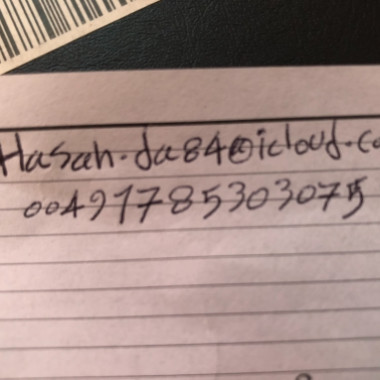 Hasan.da84@icloud.co
004917785303075